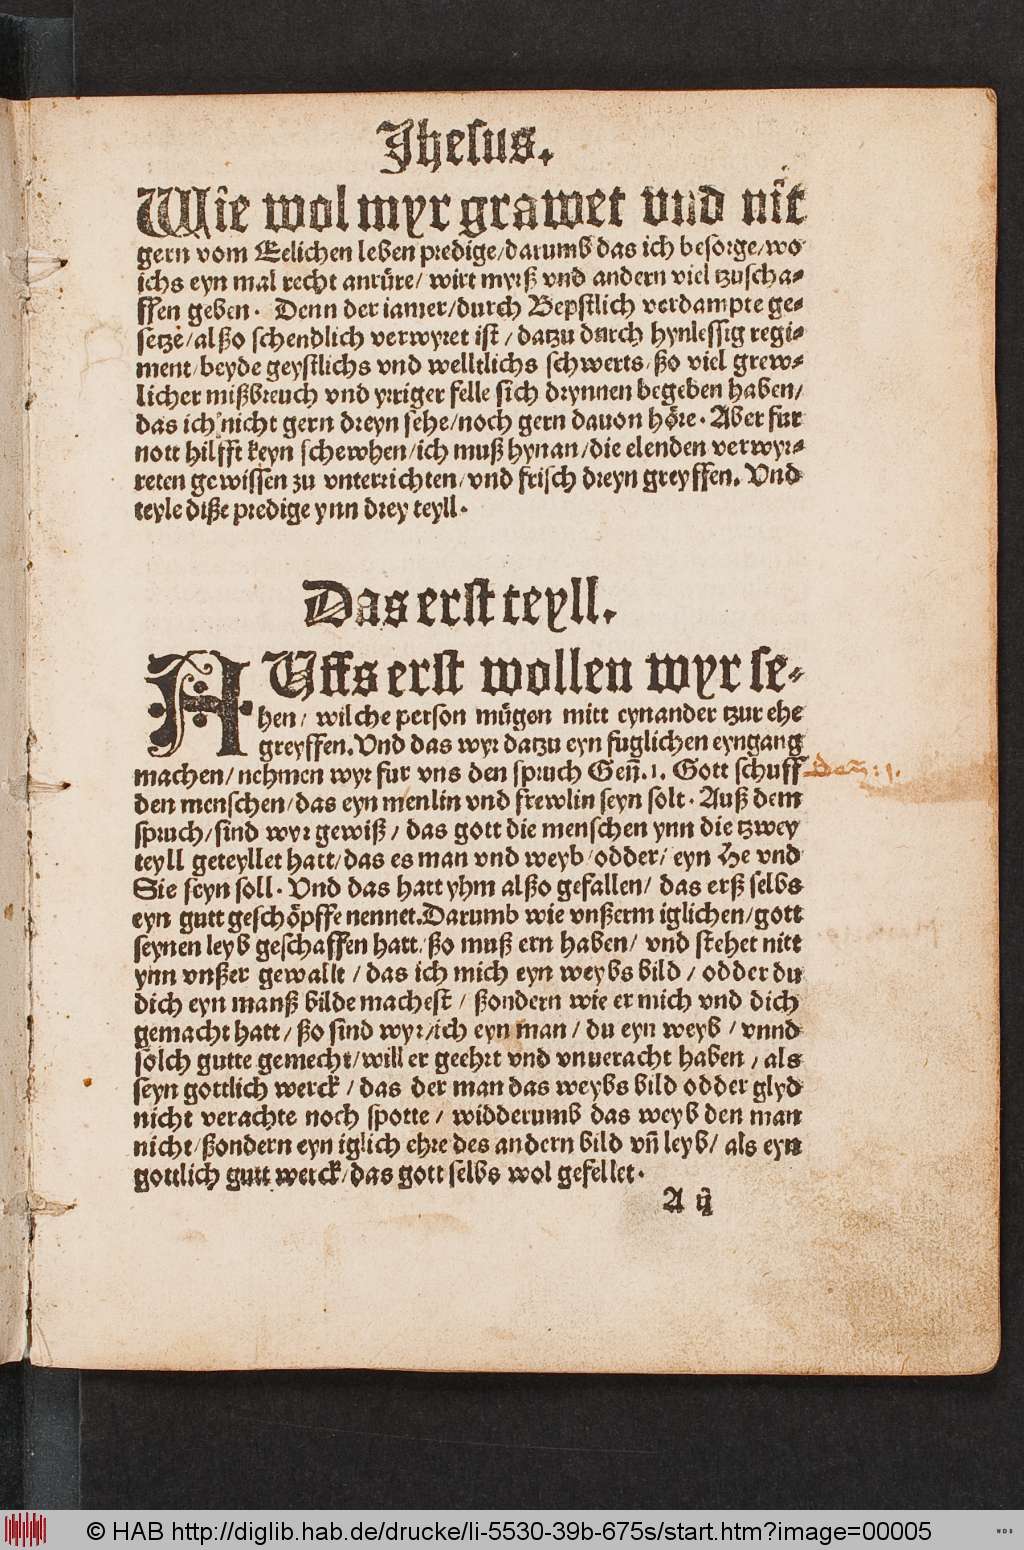 Jhesus.
Wie wol myr grawet vnd nit
gern vom Eelichen leben predige/darumb das ich besorge/wo
ichs eyn mal recht anrüre/ wirt myrß vnd andern viel tzuscha⸗
ffen geben. Denn der iamer/durch Bepstlich verdampte ge⸗
setze/alßo schendlich verwyret ist/datzu durch hynlessig regi⸗
ment/beyde geystlichs vnd welltlichs schwerts/ßo viel grew⸗
licher mißbreuch vnd yrriger felle sich drynnen begeben haben/
das ich nicht gern dreyn sehe/noch gern dauon höre. Aber fur
nott hilfft keyn schewhen/ich muß hynan/die elenden verwyr⸗
reten gewissen zu vnterrichten/vnd frisch dreyn greyffen. Vnd
teyle diße predige ynn drey teyll.
Das erst teyll.
AUffs erst wollen wyr se⸗
hen/ wilche person mügen mitt eynander tzur ehe
greyffen. Vnd das wyr datzu eyn fuglichen eyngang
machen/nehmen wyr fur vns den spruch Geñ.1. Gott schuff
den menschen/das eyn menlin vnd frewlin seyn solt. Auß dem
spruch/sind wyr gewiß/ das gott die menschen ynn die tzwey
teyll geteyllet hatt/das es man vnd weyb/odder/ eyn He vnd
Sie seyn soll. Vnd das hatt yhm alßo gefallen/ das erß selbs
eyn gutt geschöpffe nennet. Darumb wie vnßerm iglichen/gott
seynen leyb geschaffen hatt/ßo muß ern haben/ vnd stehet nitt
ynn vnßer gewallt/das ich mich eyn weybs bild/odder du
dich eyn manß bilde machest/ ßondern wie er mich vnd dich
gemacht hatt/ßo sind wyr/ich eyn man/ du eyn weyb/vnnd
solch gutte gemecht/will er geehrt vnd vnueracht haben/als
seyn gottlich werck/das der man das weybs bild odder glyd
nicht verachte noch spotte/ widderumb das weyb den man
nicht/ßondern eyn iglich ehre des andern bild vñ leyb/als eyn
gottlich gutt werck/das gott selbs wol gefellet.
A ij
© HAB http://diglib.hab.de/drucke/li-5530-39b-675s/start.htm?image=00005